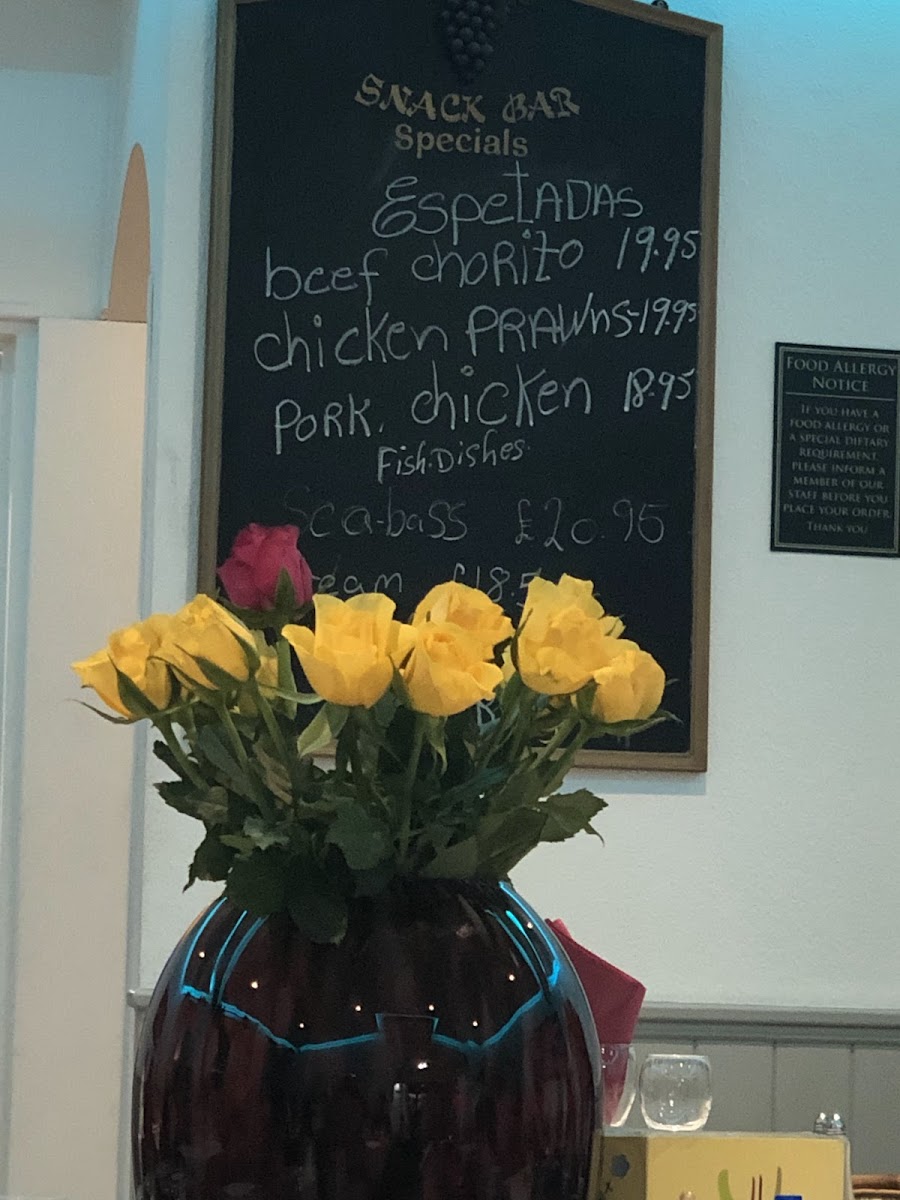 SNACK BAR
Specials
EspetADAS
beef choRizo 19.95
chicken PRAWnS-19.95
PORK. chicken 18.95
Fish.Dishes.
Sea-bass £20.95
FOOD ALLERGY
NOTICE
IF YOU HAVE A
FOOD ALLERGY OR
A SPECIAL DIETARY
REQUIREMENT
PLEASE INFORM A
MEMBER OF OUR
STAFF BEFORE YOU
PLACE YOUR ORDER.
THANK YOU